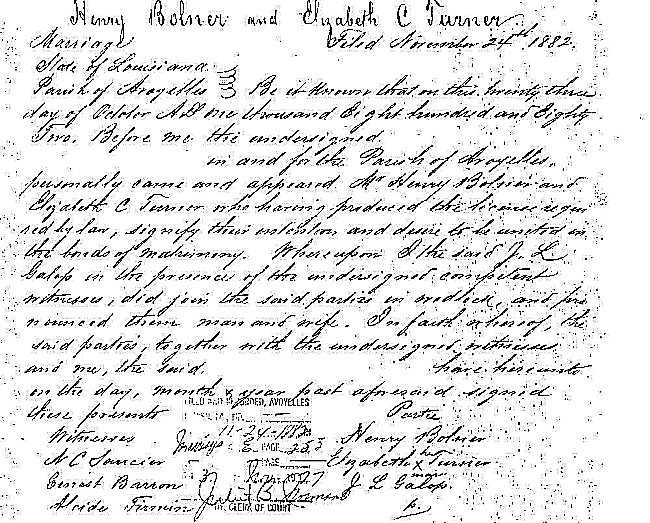 Henry Bolner and Elizabeth C Turner.
Marriage Filed November 24th 1882.
State of Louisiana
Parish of Avoyelles Be it known that on this twenty three
day of October A.D one thousand Eight hundred and Eighty
Two. Before me the undersigned
in and for the Parish of Avoyelles.
personally came and appeared Mr Henry Bolner and
Elizabeth C Turner who having produced the license requi
red by law, signify their intention and desire to be united in
the bonds of matrimony. Whereupon I the said J. L
Galop in the presence of the undersigned competent
witnesses, did join the said parties in wedlock, and pro
nounced them man and wife. In faith whereof, the
said parties, together with the undersigned witnesses
and me, the said. have hereunto
on the day, month & year past aforesaid signed
these presents Parties
FILED AND RECORDED, AVOYELLES
11-24-1882
Witnesses PAGE 253 Henry Bolner
N C Saucier Elizabeth her x mark Turner
Ernest Barron J L Galop
Alcide Firmin
DY. CLERK OF COURT